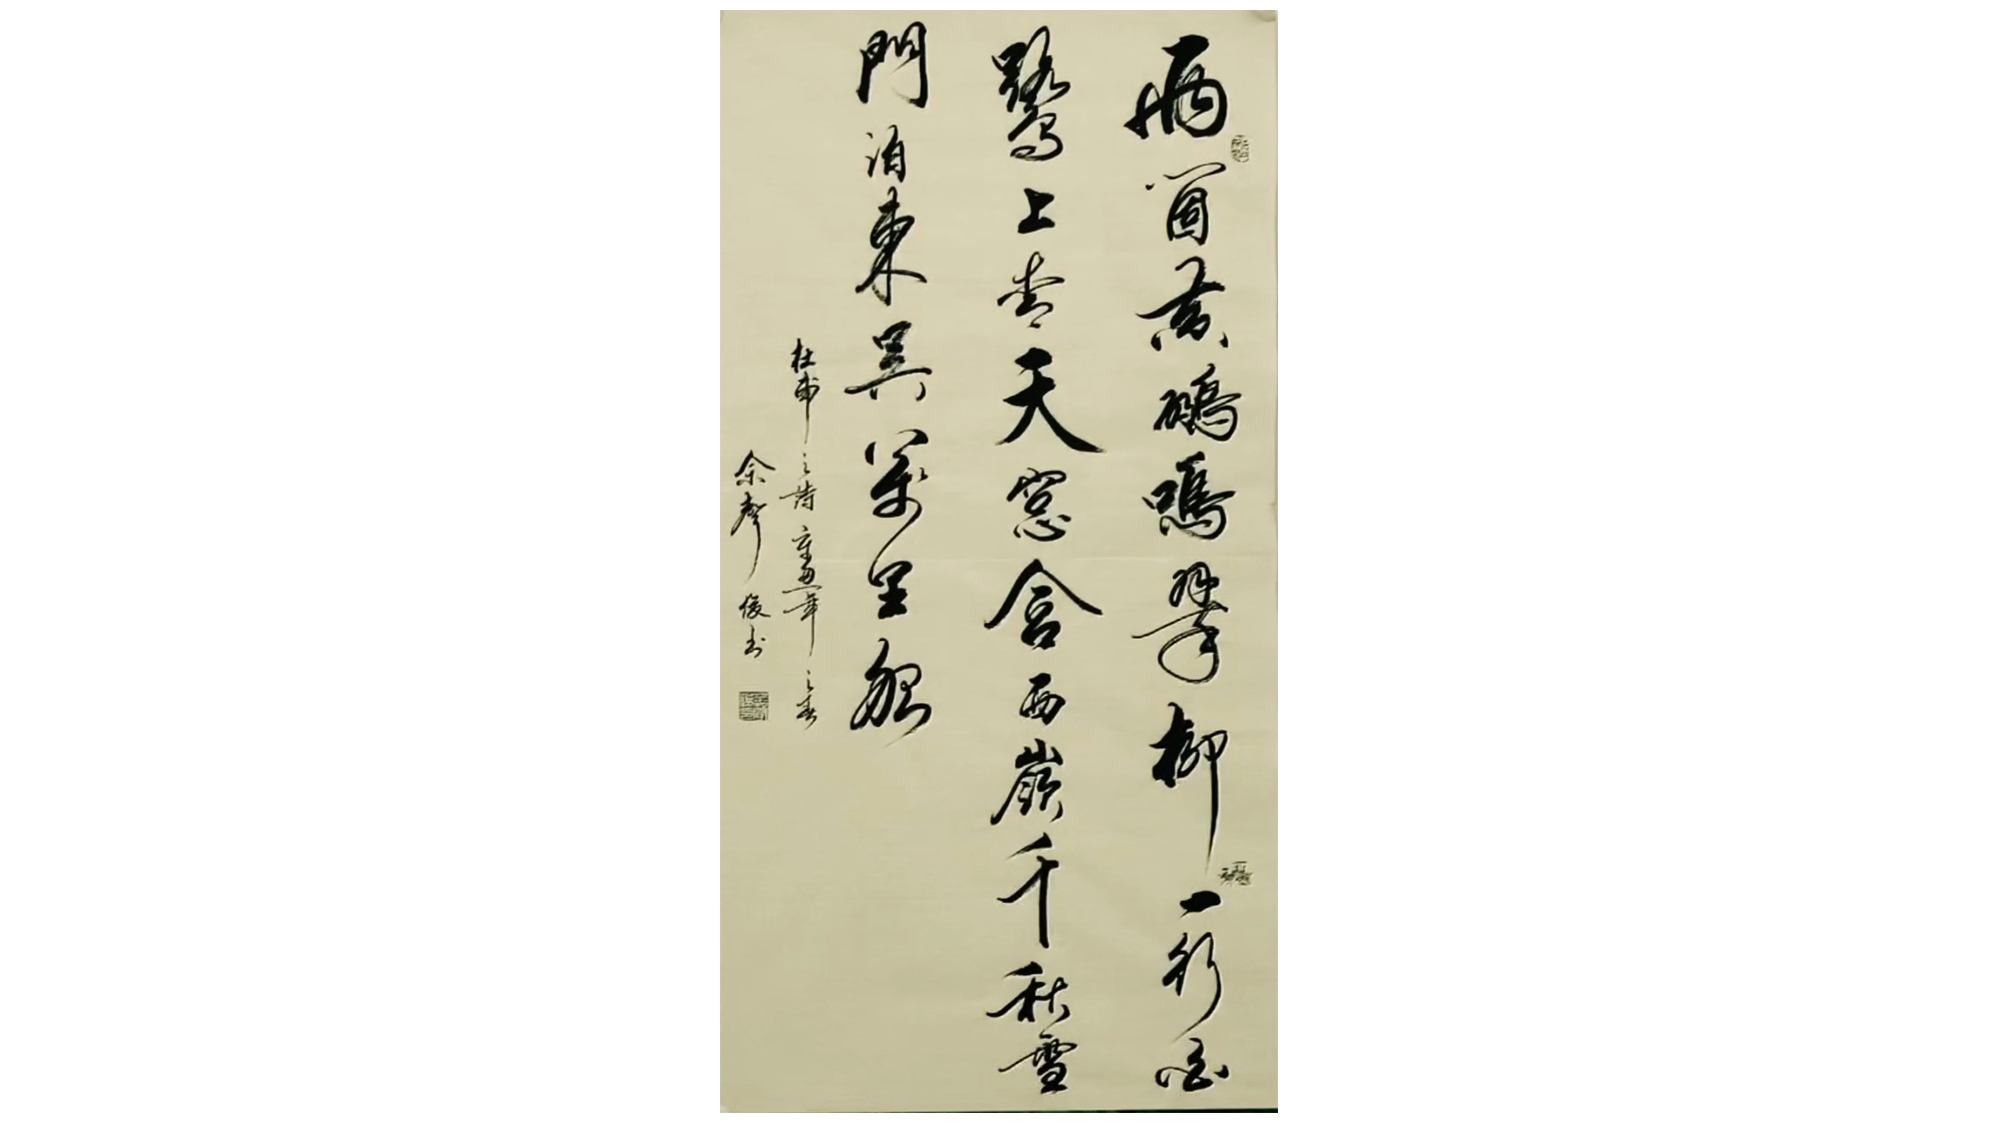 兩箇黃鸝鳴翠柳一行白
鷺上青天窓含西嶺千秋雪
門泊東吳萬里船
杜甫之詩辛丑年之春
余聲俊书